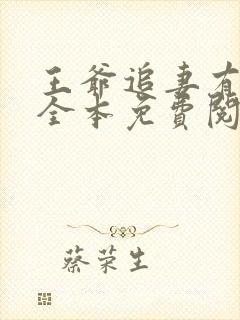 王爷追妻有
全本免费阅
蔡荣生